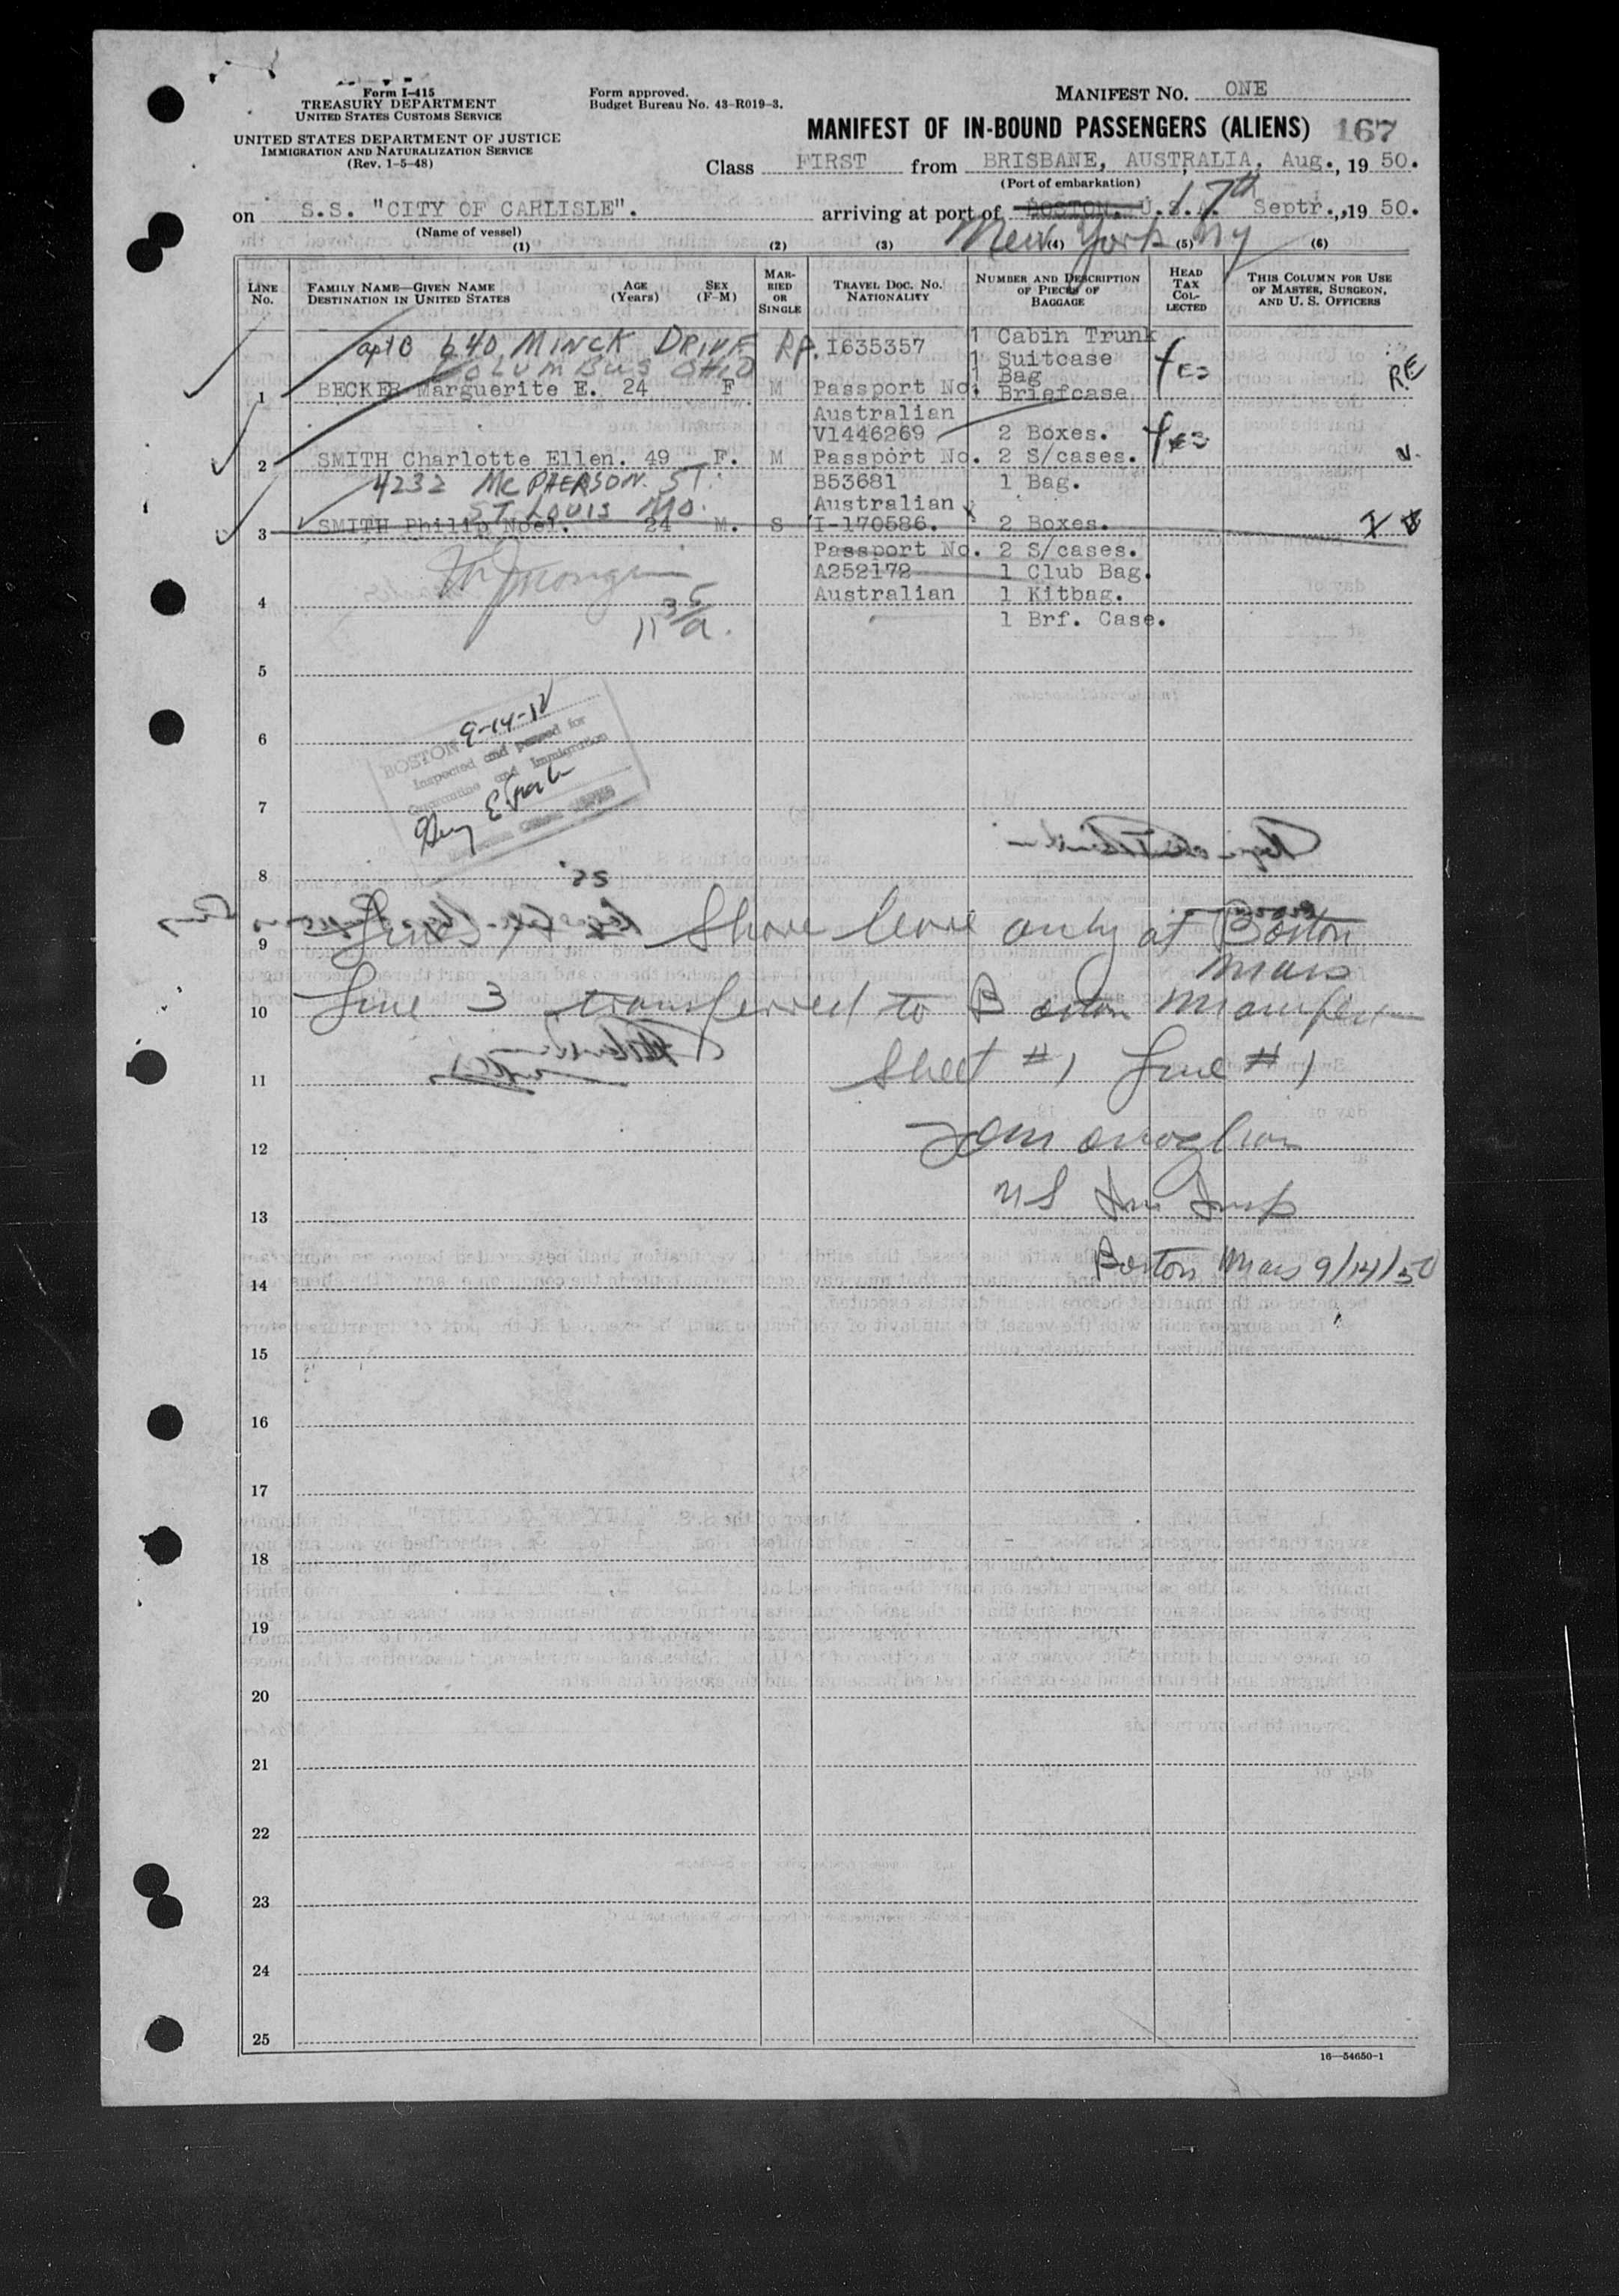 Form I-415
TREASURY DEPARTMENT
UNITED STATES CUSTOMS SERVICE
UNITED STATES DEPARTMENT OF JUSTICE
IMMIGRATION AND NATURALIZATION SERVICE
(Rev. 1-5-48)
Form approved.
Budget Bureau No. 43-R019-3.
MANIFEST NO. ONE
MANIFEST OF IN-BOUND PASSENGERS (ALIENS) 167
Class FIRST from BRISBANE, AUSTRALIA, Aug., 19 50.
(Port of embarkation)
on S.S. "CITY OF CARLISLE". arriving at port of BOSTON, U.S.A. 17th Septr., 19 50.
(Name of vessel)
New York NY
(1) (2) (3) (4) (5) (6)
LINE No. FAMILY NAME—GIVEN NAME DESTINATION IN UNITED STATES AGE (Years) SEX (F-M) MARRIED OR SINGLE TRAVEL DOC. NO. NATIONALITY NUMBER AND DESCRIPTION OF PIECES OF BAGGAGE HEAD TAX COLLECTED THIS COLUMN FOR USE OF MASTER, SURGEON, AND U. S. OFFICERS
apt B 640 MINCK DRIVE RP. I635357 1 Cabin Trunk
COLUMBUS OHIO 1 Suitcase Yes
1 Bag
1 BECKER Marguerite E. 24 F M Passport No. 1 Briefcase RE
Australian
V1446269 2 Boxes. Yes
2 SMITH Charlotte Ellen. 49 F. M Passport No. 2 S/cases.
4232 MCPHERSON. ST. B53681 1 Bag.
ST LOUIS MO. Australian
3 SMITH Philip Noel. 24 M. S I-170586. 2 Boxes.
Passport No. 2 S/cases.
A252172 1 Club Bag.
4 Australian 1 Kitbag.
1 Brf. Case.
5
6
BOSTON 9-14-50
Inspected and passed for
Quarantine and Immigration
7
8
9 Shore leave only at Boston
Mass
10 Line 3 transferred to Boston Manifest
11 Sheet #1 Line #1
12
13 US Im Insp
14 Boston Mass 9/14/50
15
16
17
18
19
20
21
22
23
24
25
16—54650-1